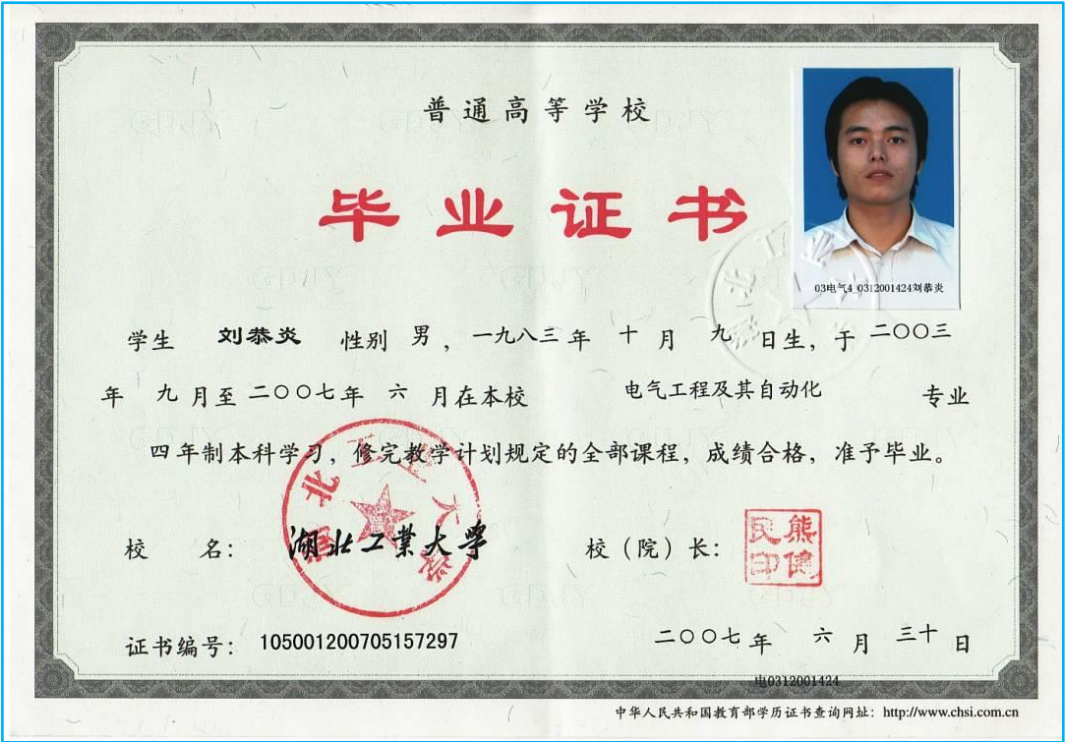 普通高等学校
毕业证书
03电气4_0312001424刘恭炎
学生 刘恭炎 性别 男，一九八三年 十月 九日生，于二〇〇三
年 九月至二〇〇七年 六 月在本校 电气工程及其自动化 专业
四年制本科学习，修完教学计划规定的全部课程，成绩合格，准予毕业。
湖北工业大学
校 名： 湖北工業大學 校（院）长： 熊健民印
证书编号： 105001200705157297 二〇〇七年 六 月 三十 日
电0312001424
中华人民共和国教育部学历证书查询网址： http://www.chsi.com.cn